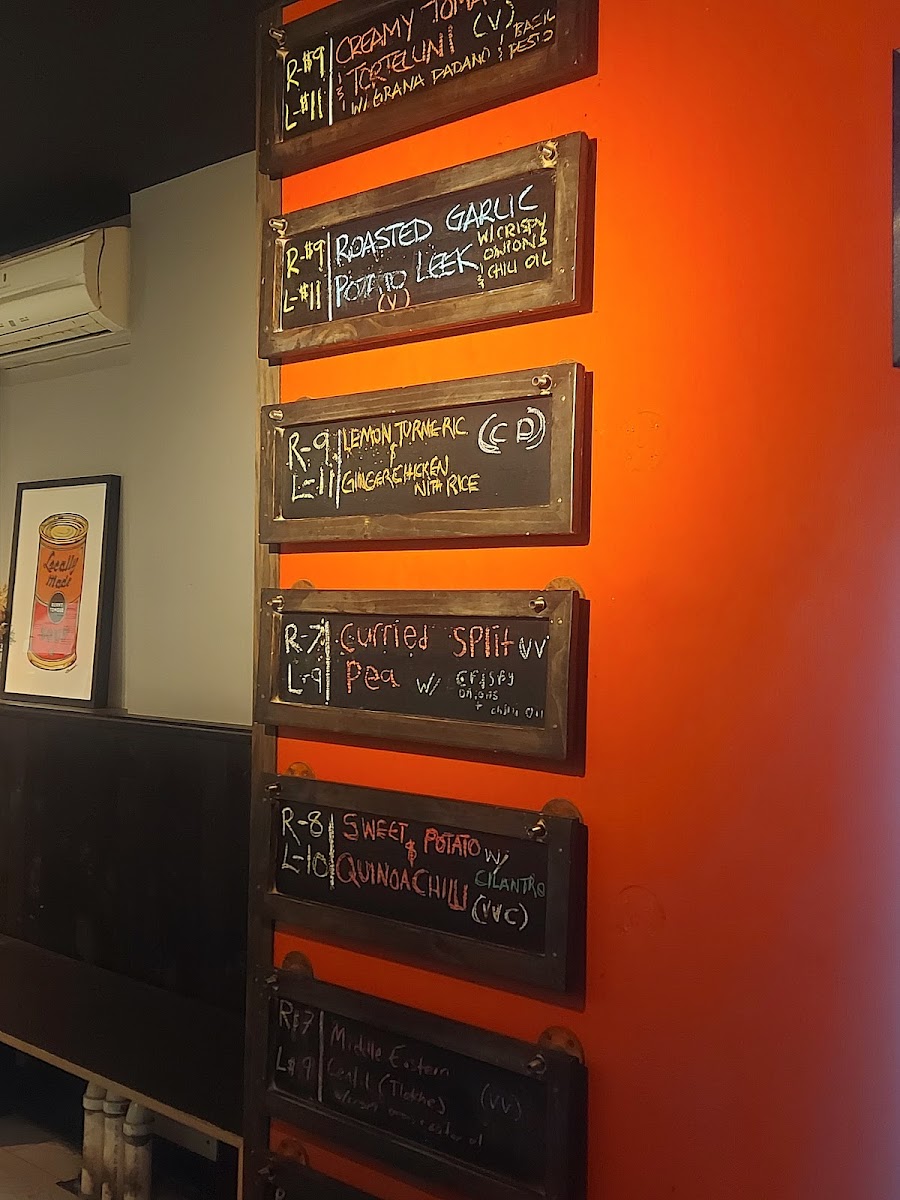 R-$9 CREAMY TOMA
L-$11 & TORTELLINI (V)
W/ GRANA PADANO & BASIL PESTO
R-$9 ROASTED GARLIC
L-$11 POTATO LEEK
(V)
W/CRISPY
ONIONS
& CHILI OIL
R-9 LEMON TURMERIC
&
L-11 GINGER CHICKEN
WITH RICE
(CD)
R-7 Curried Split VV
L-9 Pea w/ Crispy
onions
+ chili oil
R-8 SWEET POTATO W/
&
L-10 QUINOA CHILI
CILANTRO
(VVC)
R$7 Middle Eastern
L$9 Lentil (VV)
Locally
Made
SOUP
R